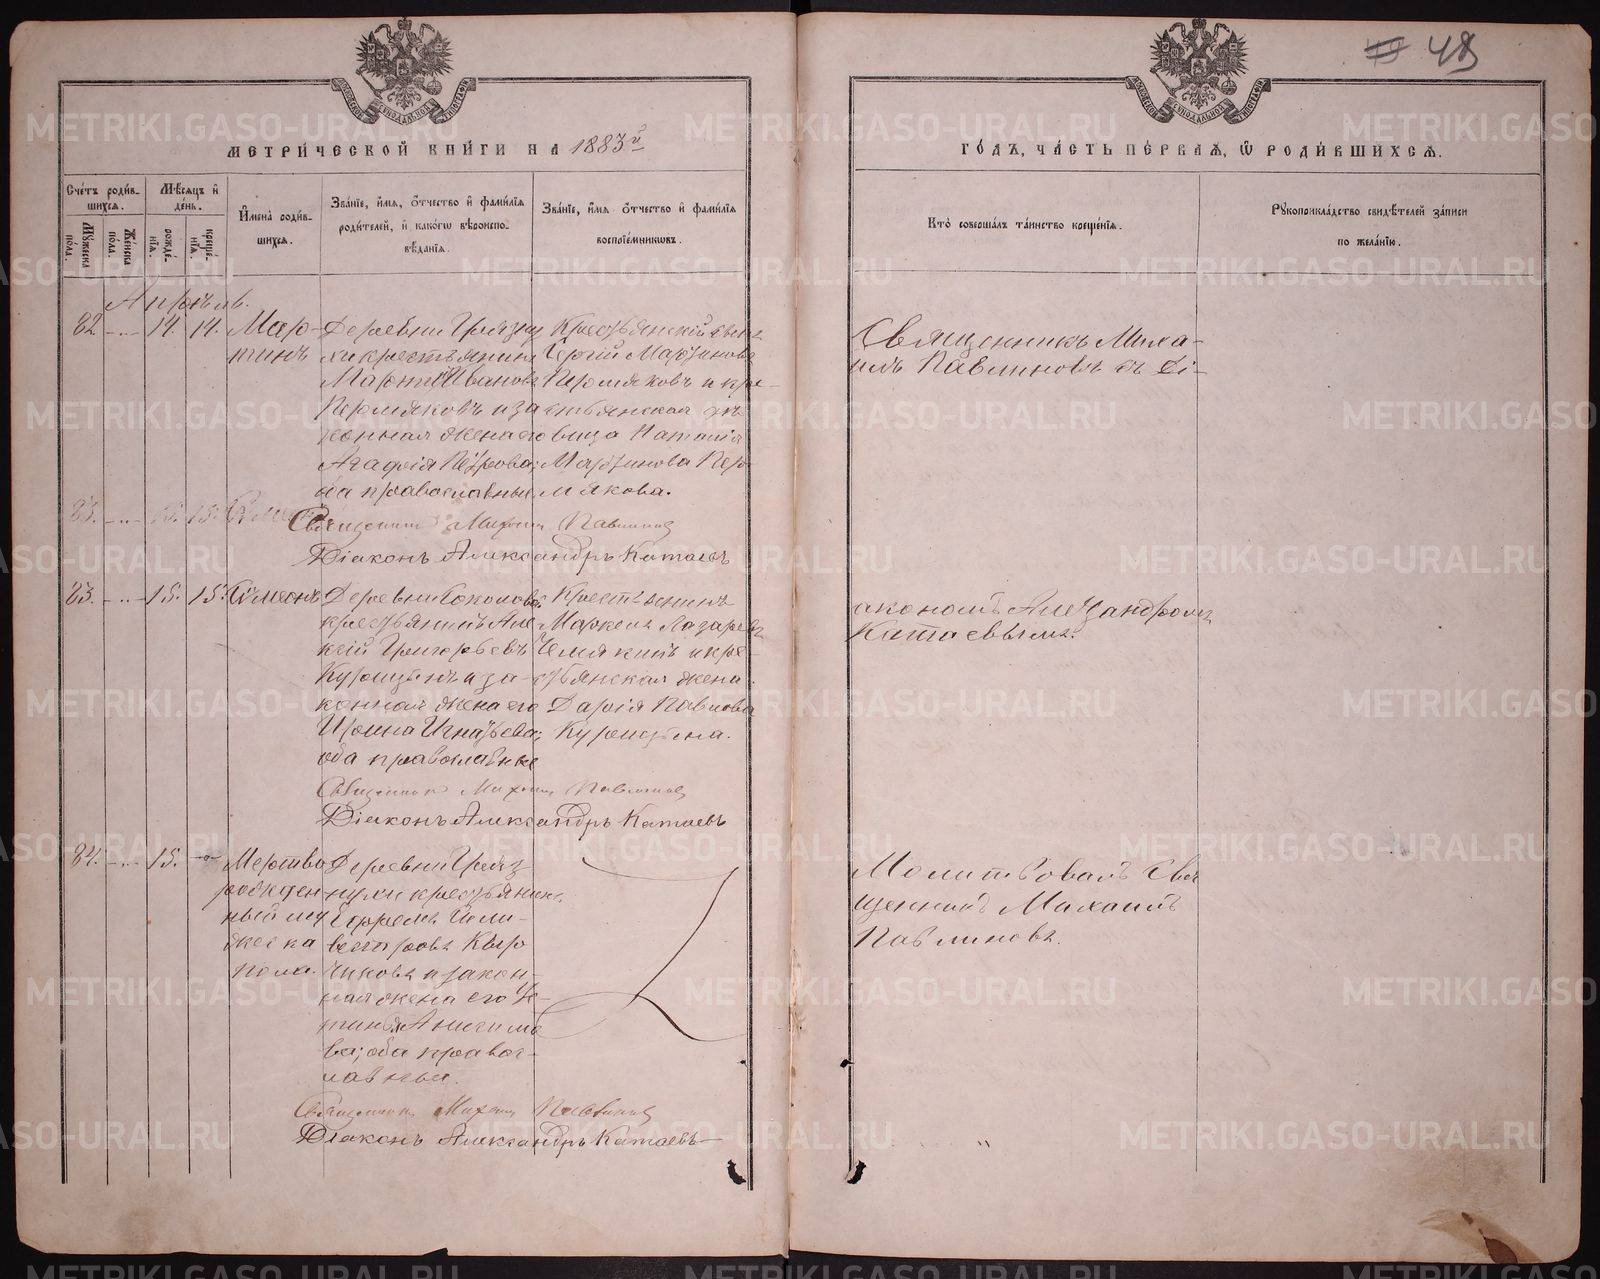 48
МЕТРИЧЕСКОЙ КНИГИ НА 1883й
ГОДЪ, ЧАСТЬ ПЕРВАЯ, Ѡ РОДИВШИХСЯ.
Счетъ родив-
шихся.
Мужеска пола.
Женска пола.
Мѣсяцъ и
день.
рожденія.
крещенія.
Имена родив-
шихся.
Званіе, имя, отчество и фамилія
родителей, и какогѡ вѣроиспо-
вѣданія.
Званіе, имя отчество и фамилія
воспріемникѡвъ.
Кто совершалъ таинство крещенія.
Рукоприкладство свидѣтелей записи
по желанію.
Апрѣль.
82 - " - 14. 14.
Мар-
тинъ
Деревни Грязну
хи крестьянинъ
Мартинъ Ивановъ
Пермяковъ и за
конная жена его
Агафія Петрова;
оба православные
Крестьянскій сынъ
Мартиновъ
Пермяковъ и кре-
стьянская дѣ
вица Наталія
Мартинова Пер-
мякова.
Священникъ Миха-
илъ Павлиновъ съ Ді-
83. - " - 15. 15. Симеонъ
Священникъ Михаилъ Павлиновъ
Діаконъ Александръ Катаевъ
83. - " - 15. 15. Симеонъ
Деревни Соколова
крестьянинъ Але
ксій Григорьевъ
Курицынъ и за-
конная жена его
Ирина Игнатьева;
оба православные
Крестьянинъ
Маркелъ Лазаревъ
Чемякинъ и кре-
стьянская жена
Дарія Павлова
Курицына.
акономъ Александромъ
Катаевымъ.
Священникъ Михаилъ Павлиновъ
Діаконъ Александръ Катаевъ
84. - " - 15. -"-
Мертво
рожден
ный му
жеска
пола.
Деревни Гряз
нухи крестьянинъ
Ефремъ
и закон-
ная жена его Ус-
тинья
ва; оба правос-
лавные.
Молитвовалъ Свя
щенникъ Михаилъ
Павлиновъ.
Священникъ Михаилъ Павлиновъ
Діаконъ Александръ Катаевъ
METRIKI.GASO-URAL.RU